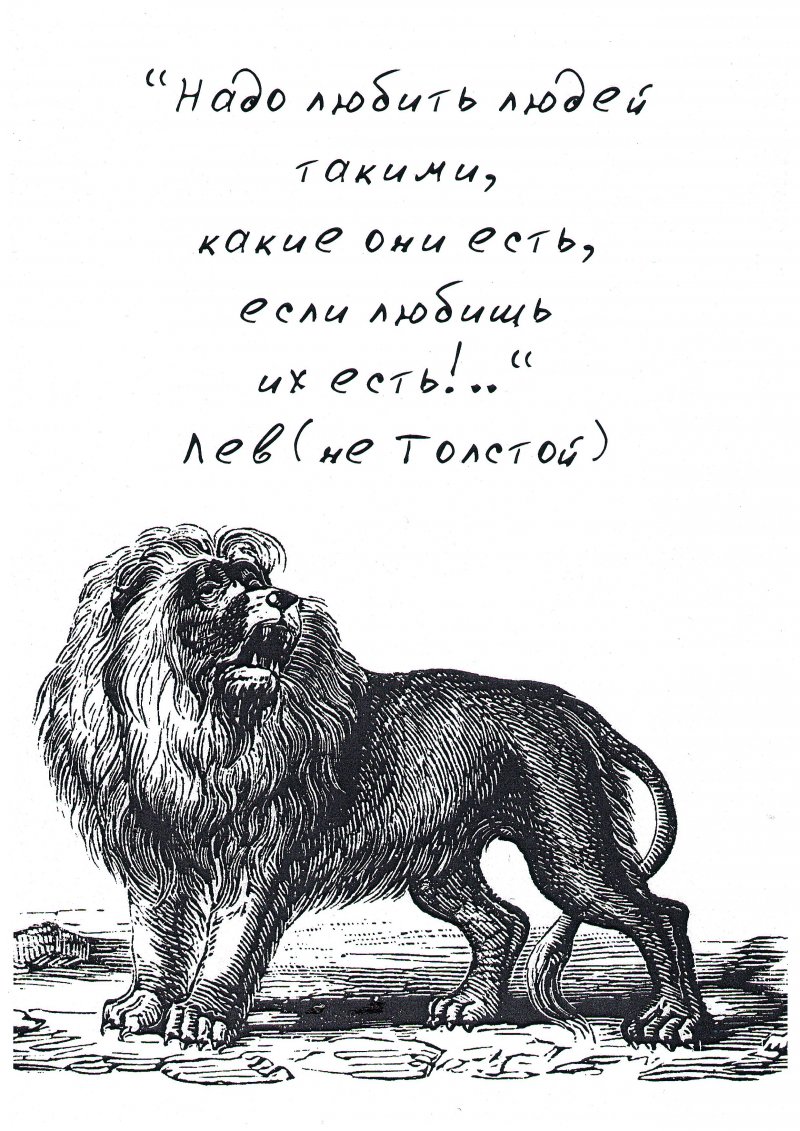 “Надо любить людей
такими,
какие они есть,
если любишь
их есть!..“
Лев (не Толстой)